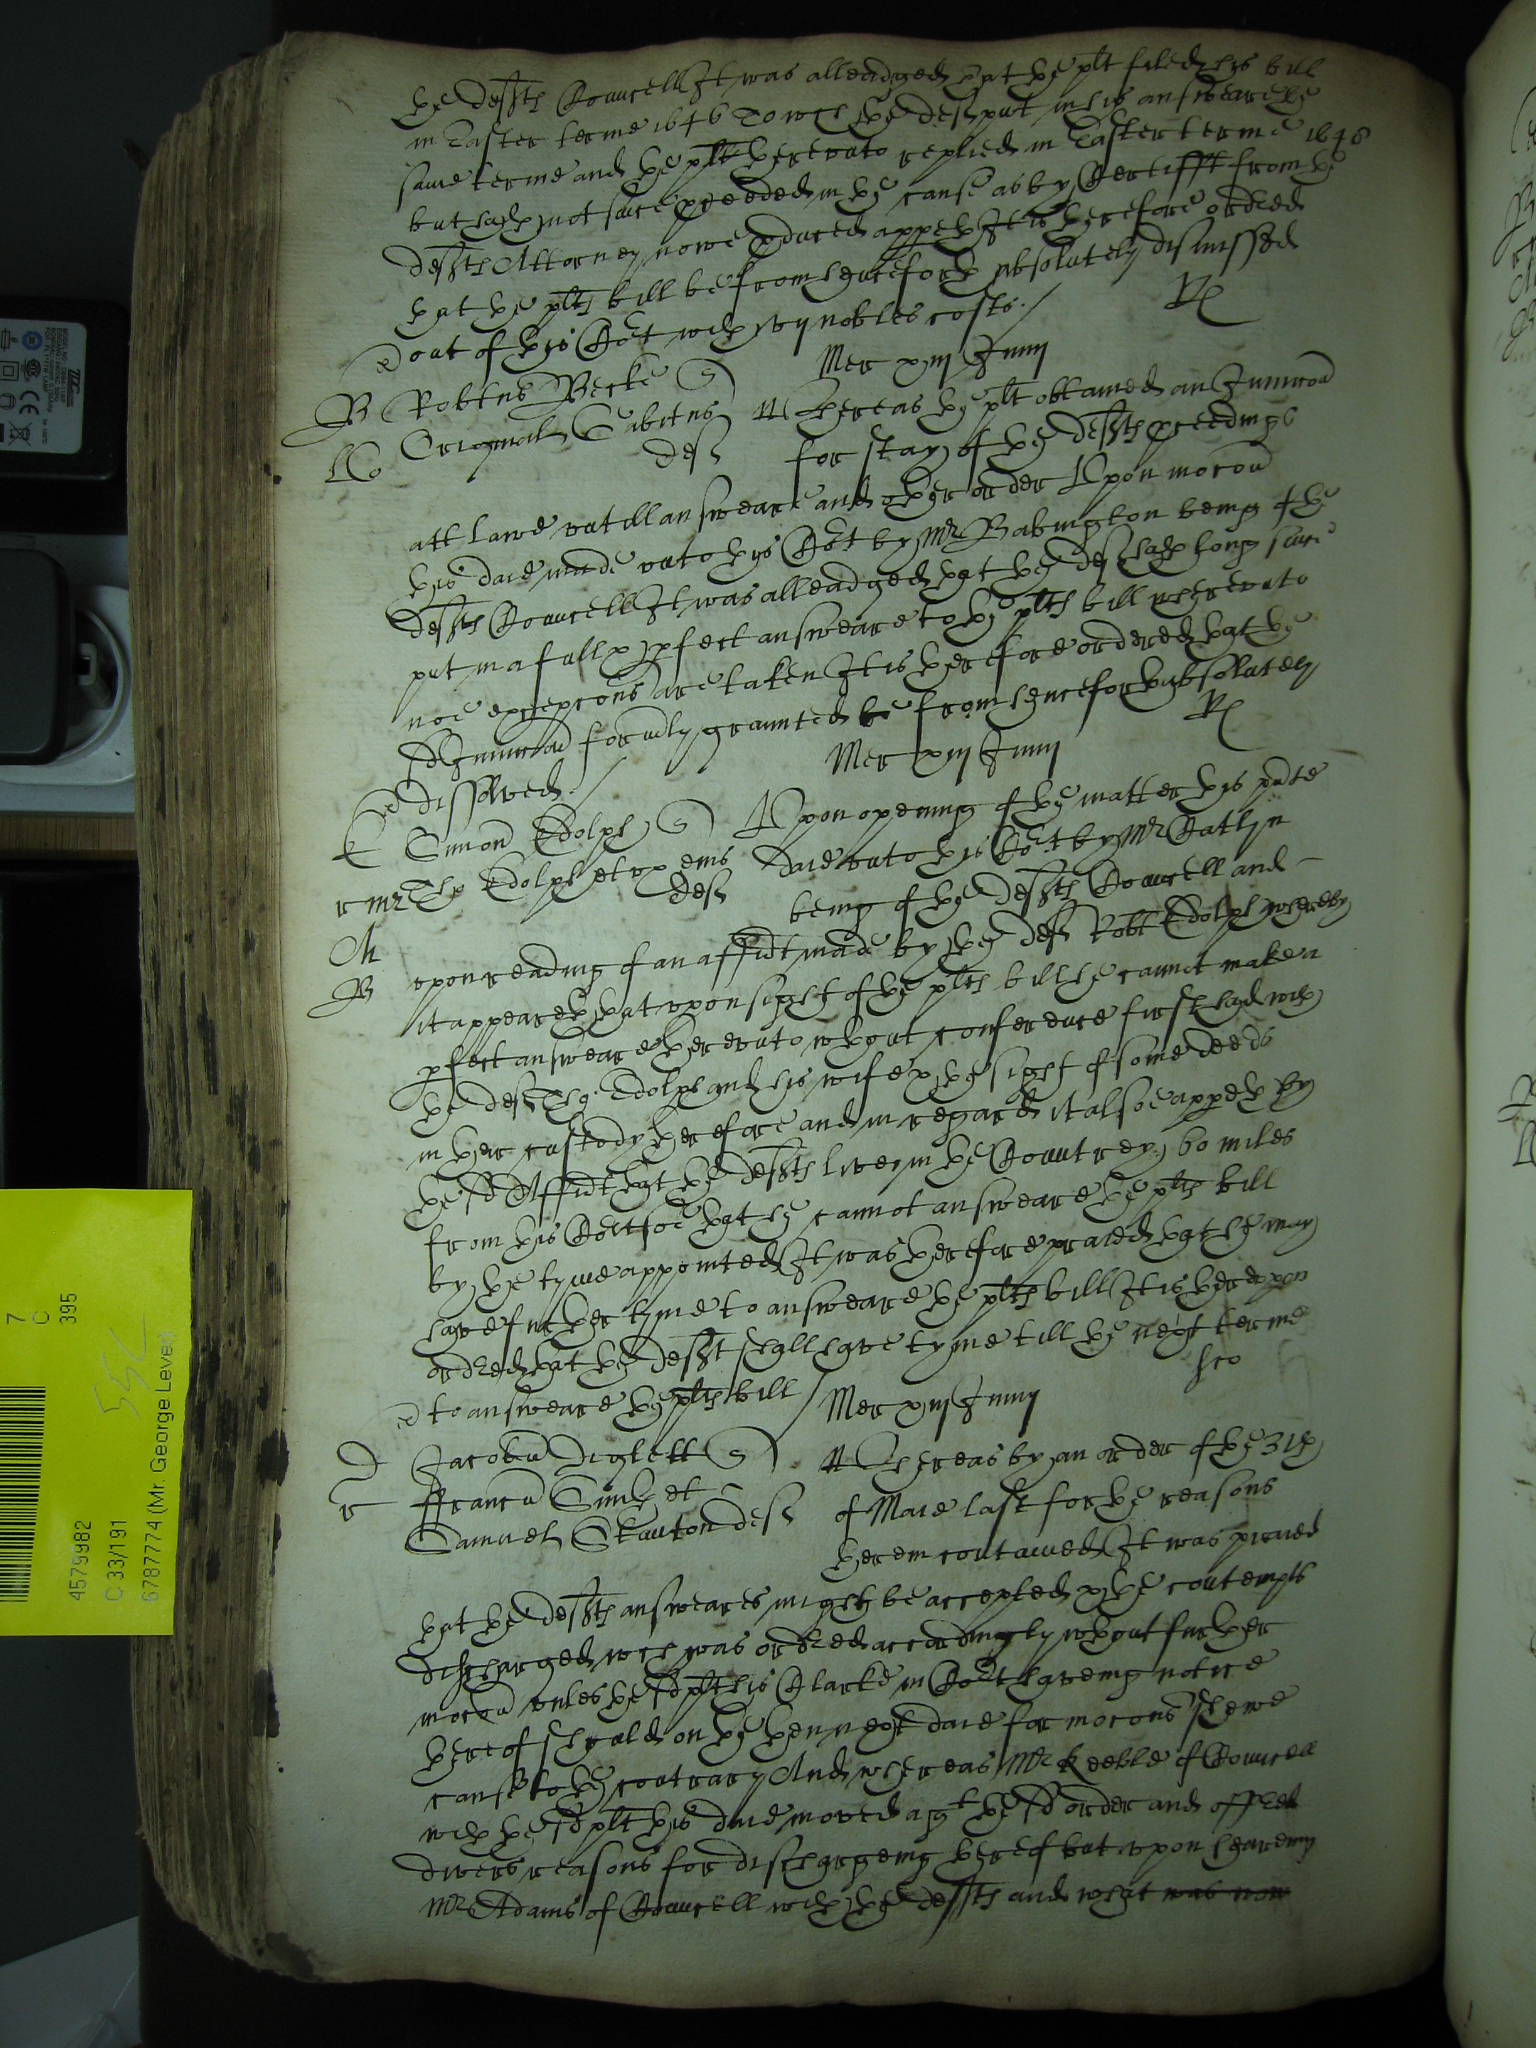 the defts Councell It was alleadged that the plt filed his bill
in Easter terme 1646 To wch the deft put in his answeare the
same terme and the plt therevnto replied in Easter terme 1648
but hath not since pceeded in the cause as by Certifft from the
defts Attorney now pduced appeth It is therefore ordred
that the plts bill be from henceforth absolutely dismissed
out of this Cort with nobles costs
Mer xiij Junij
B Robtus Becke
Originall deft
Whereas the plt obtained an Iniuncon
for stay of the defts pceedings
att lawe vntill answeare and other order Vpon mocon
this daie made vnto this Cort by Mr Babington being of the
defts Councell It was alleadged that the deft hath long since
put in a full & pfect answeare to the plts bill wherevnto
noe excepcons are taken It is therefore ordered that the
sd Iniuncon formerly graunted be from henceforth absolutely
dissolved
Mer xiij Junij
Simon Edolph
Edolph et vx eius
deft
Vpon opening of the matter this pnte
daie vnto this Cort by Mr Catlyn
being of the defts Councell and
vpon reading of an affidt made by the deft Robt Edolph whereby
it appeareth that vpon sight of the plts bill he cannot make a
pfect answeare therevnto wthout conference first had with
the deft Edolph and his wife & the sight of some deeds
in their custody therefore and in regard it alsoe appeth by
the sd Affidt that the defts live in the Countrey 60 miles
from this Cort soe that he cannot answeare the plts bill
by the tyme appointed It was therefore praied that he may
have further tyme to answeare the plts bill It is therevpon
ordred that the deft shall have tyme till the next terme
to answeare the plts bill
Mer xiij Junij
Jacobu
ffranc et
Samuel deft
Whereas by an order of the 31th
of Maie last for the reasons
therein contained It was praied
that the defts answeares might be accepted & the contempts
discharged wch was ordred accordingly wthout further
mocon vnles the sd plt his Clarke in Cort haveing notice
thereof should on the then next daie for mocons shewe
cause to the contrary And whereas Mr Keeble of Councell
with the sd plt this daie moved agt the sd order and offred
divers reasons for dischargeing thereof but vpon heareing
Mr Adams of Councell with the defts and what was now
7
C
395
55C
4579982
C 33/191
6787774 (Mr. George Level)